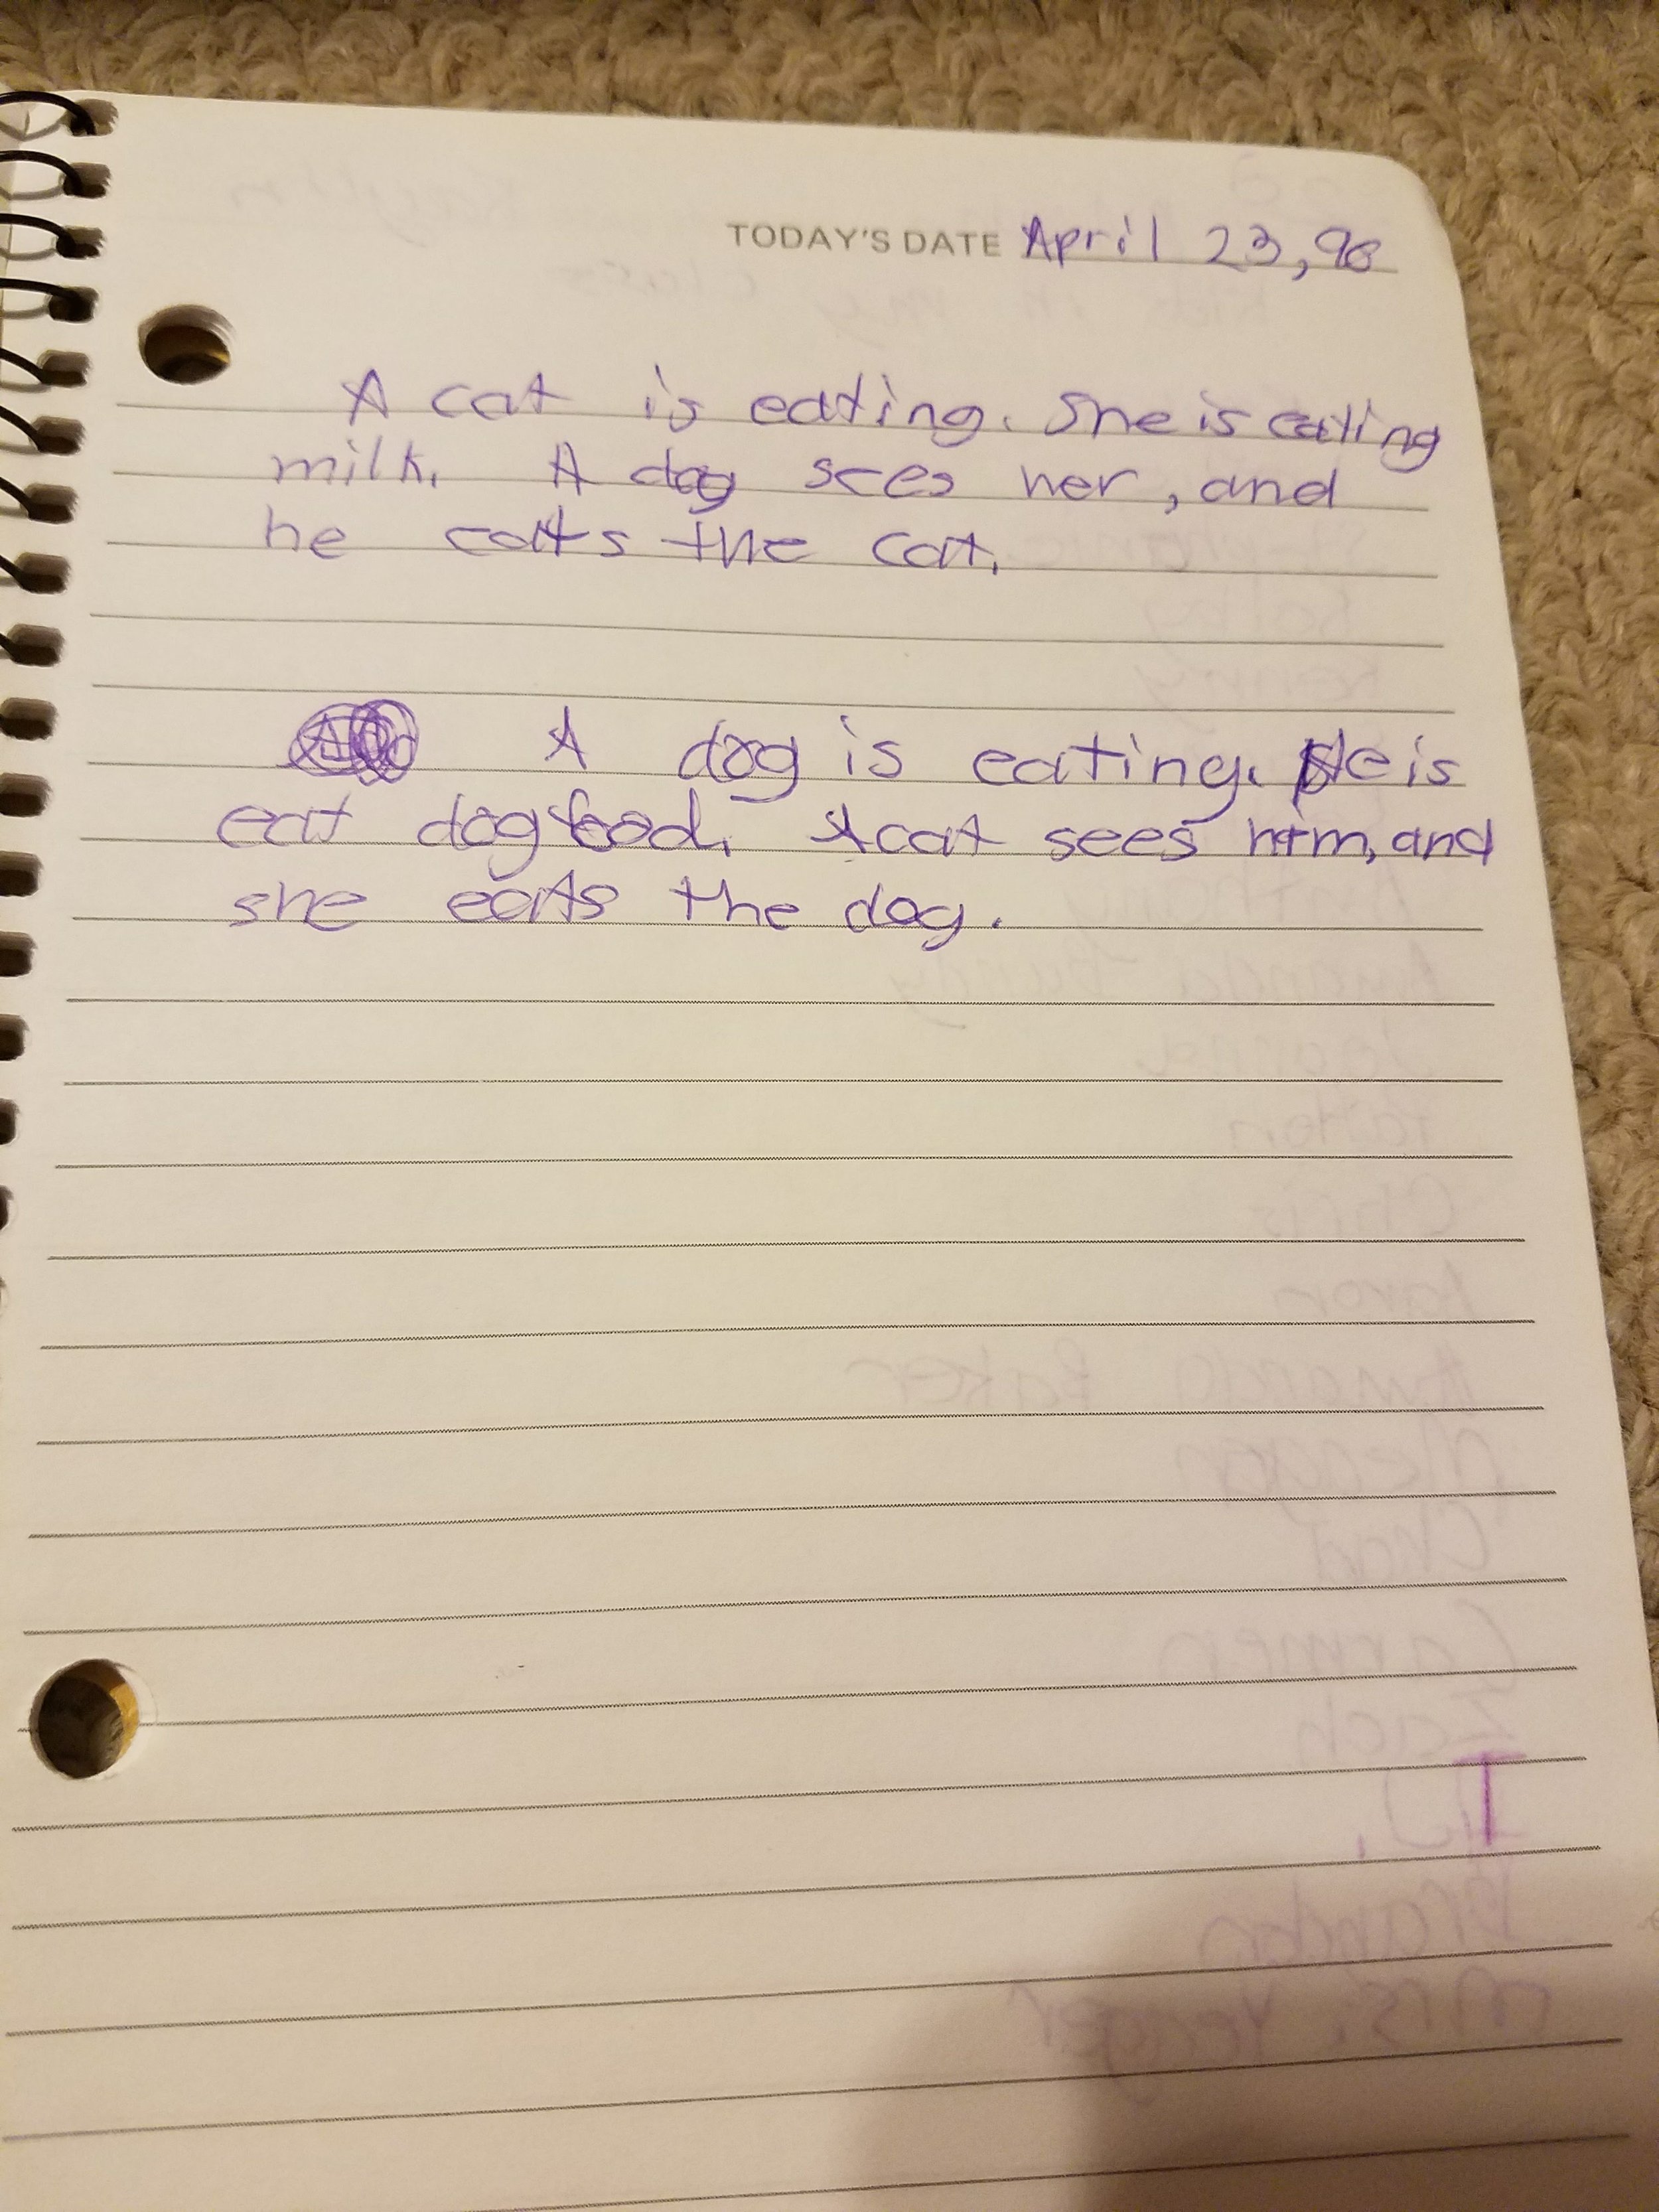 TODAY'S DATE April 23, 98
A cat is eating. She is eating
milk. A dog sees her, and
he eats the cat.
A dog is eating. He is
eat dog food. A cat sees him, and
she eats the dog.